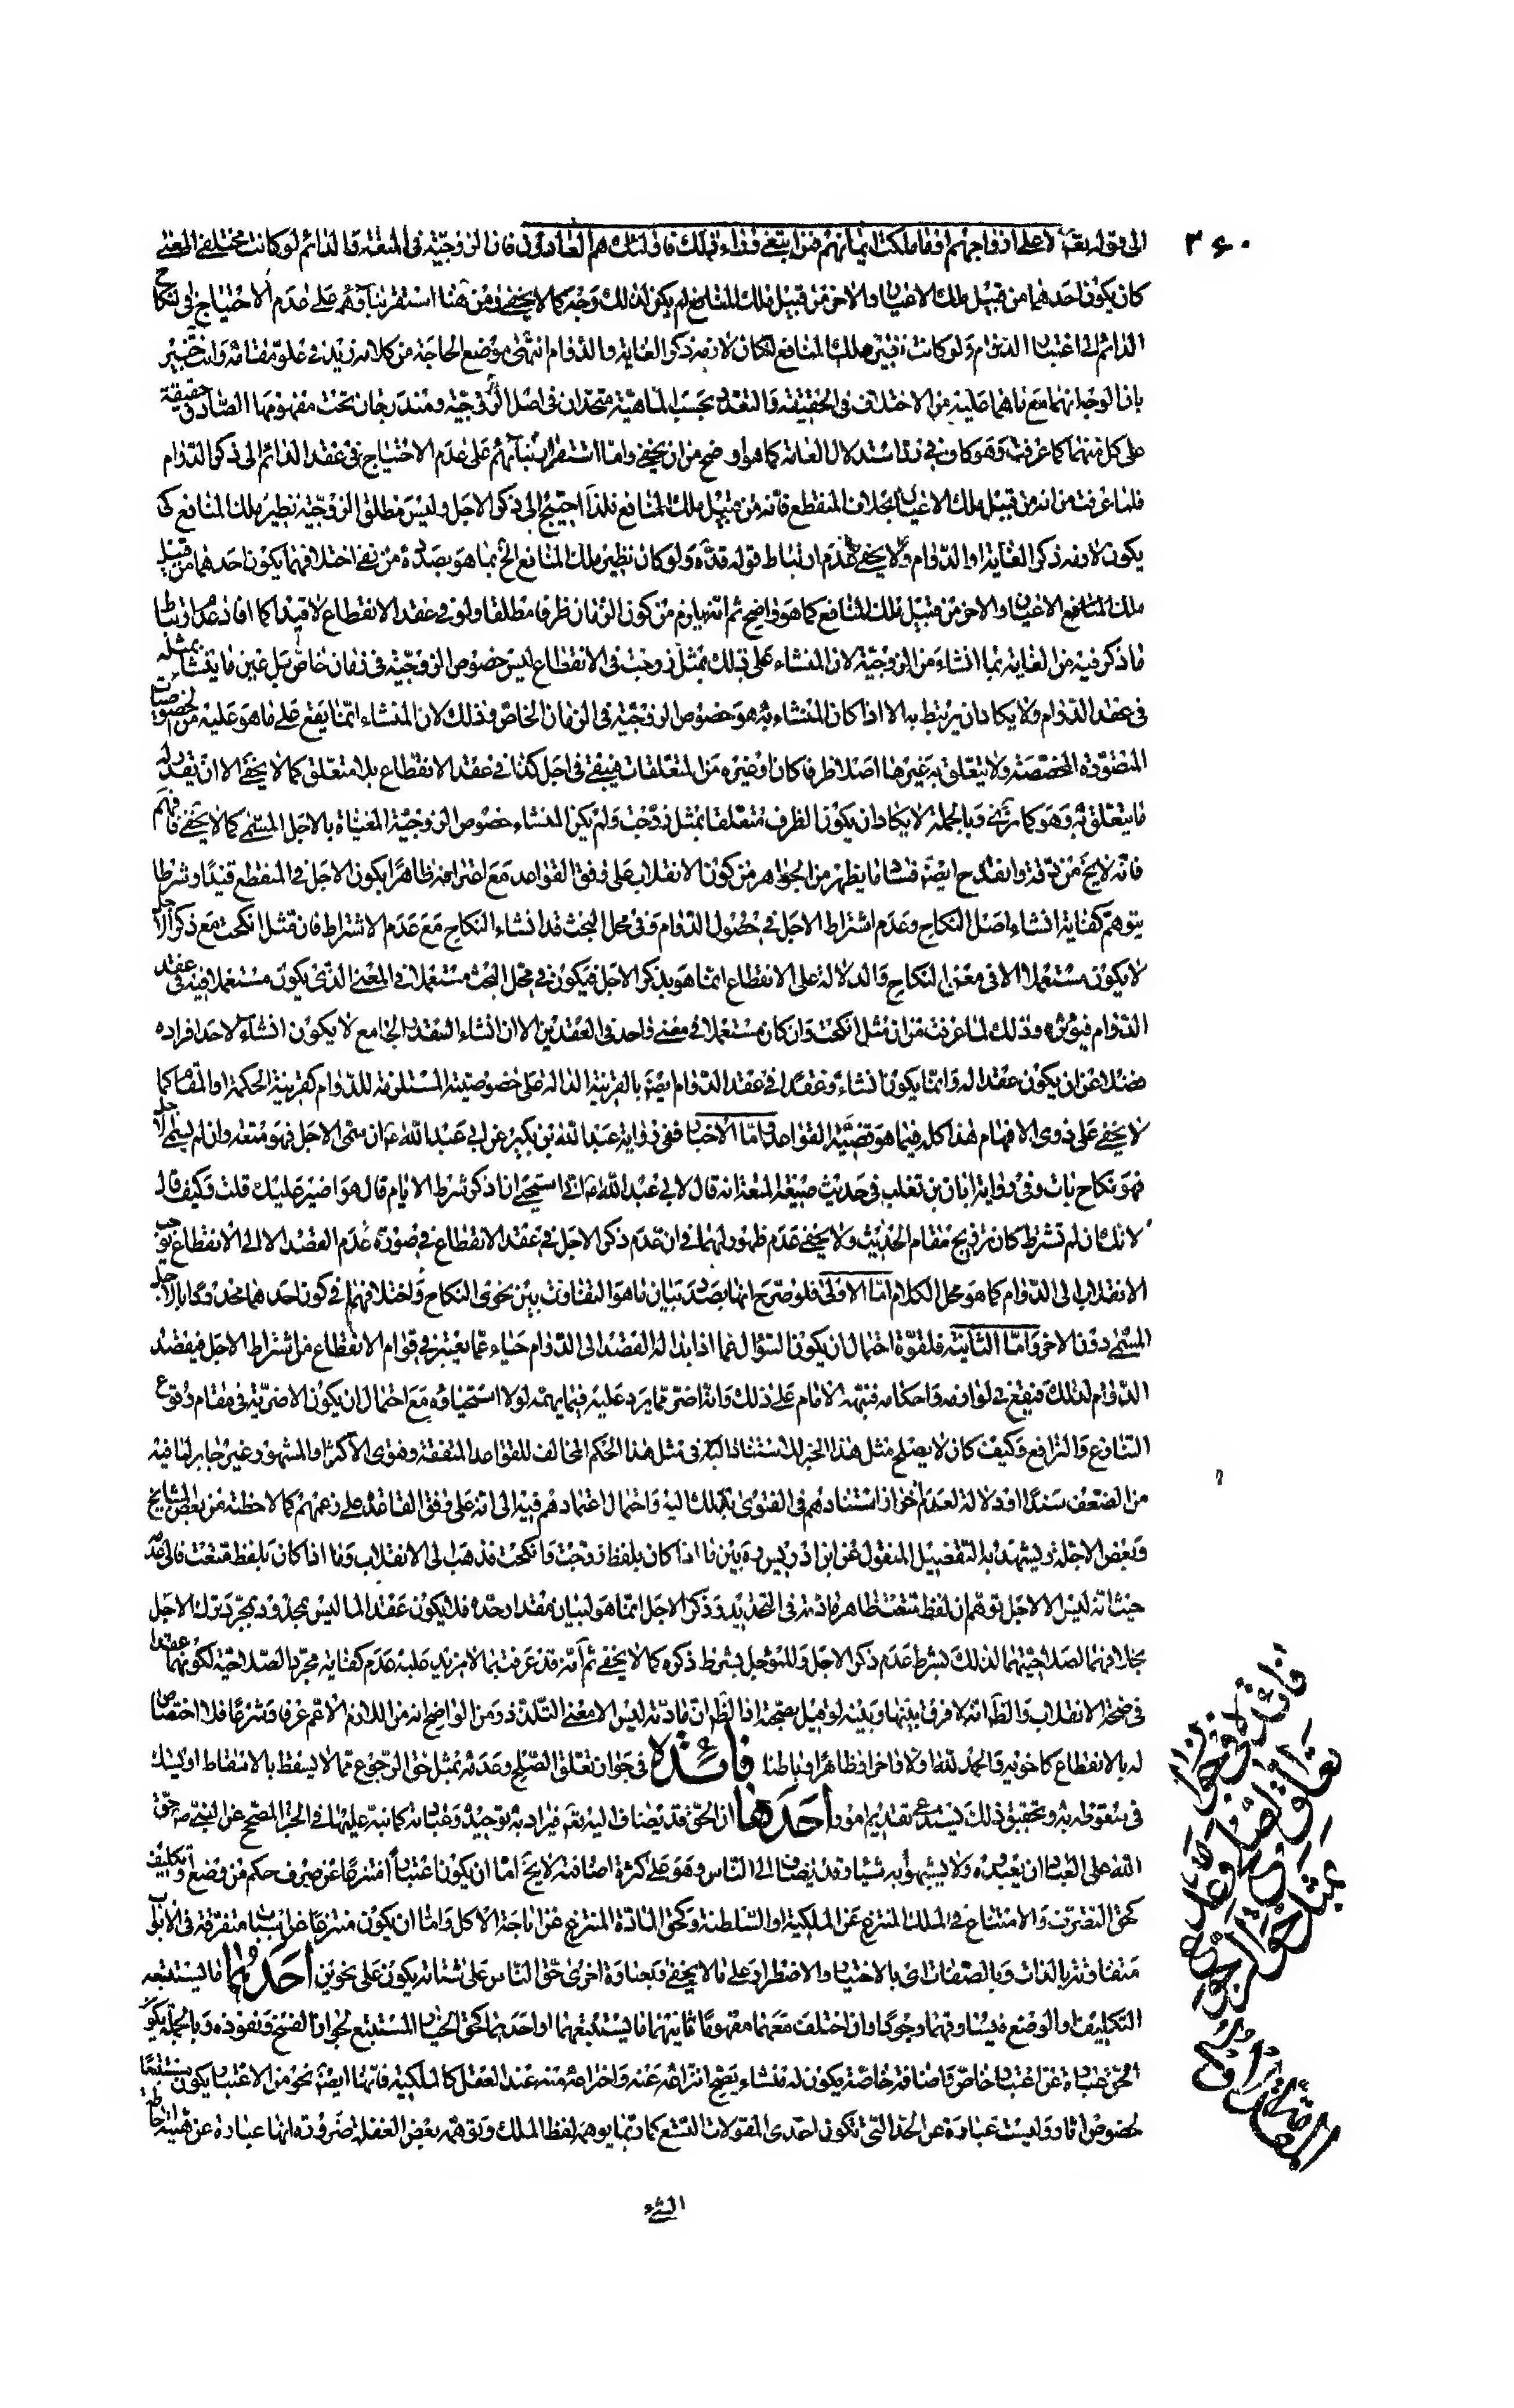 ٣٦٠
الى قوله تعالى الا على ازواجهم او ما ملكت ايمانهم فمن ابتغى وراء ذلك فاولئك هم العادون فان الزوجية فى المتعة والدائم لو كانت مختلفى المعنى
كان يكون احدهما من قبيل ملك الاعيان والاخر من قبيل ملك المنافع لم يكن لذلك وجه كما لا يخفى ومن هنا استقر بناؤهم على عدم الاحتياج فى النكاح
الدائم الى اعتبار الدوام ولو كانت من قبيل ملك المنافع لكان لازمه ذكر الغاية والدوام انتهى موضع الحاجة من كلامه زيد فى علو مقامه وانت خبير
بان الوجدانهما مع ما هما عليه من الاختلاف فى الحقيقة والتعدد بحسب الماهية متحدان فى اصل الزوجية ومندرجان تحت مفهومها الصادق حقيقة
على كل منهما كما عرفت وهو كاف فى رد استدلال العامة كما هو اوضح من ان يخفى واما استقرار بنائهم على عدم الاحتياج فى عقد الدائم الى ذكر الدوام
فلما عرفت من انه من قبيل ملك الاعيان بخلاف المنقطع فانه من قبيل ملك المنافع فلذا احتيج الى ذكر الاجل وليس مطلق الزوجية نظير ملك المنافع كى
يكون لازمه ذكر الغاية او الدوام ولا يخفى عدم ارتباط قوله قده ولو كان نظير ملك المنافع الخ بما هو بصدده من نفى اختلافهما يكون احدهما من قبيل
ملك المنافع الاعيان والاخر من قبيل ملك المنافع كما هو واضح ثم انه يلزم من كون الزمان ظرفا مطلقا ولو فى عقد الانقطاع لا قيدا كما افاد عدم ارتباط
ما ذكر فيه من الغاية بما انشاء من الزوجية لان المنشاء على ذلك بمثل زوجت فى الانقطاع ليس خصوص الزوجية فى زمان خاص بل عين ما ينشاء بمثله
فى عقد الدوام ولا يكاد ان يرتبط به الا اذا كان المنشاء به هو خصوص الزوجية فى الزمان الخاص وذلك لان المنشاء انما يقع على ما هو عليه من الخصوصيات
المتصورة المخصصة ولا يتعلق به غيرها اصلا ظرفا كان او غيره من المتعلقات فيبقى فى اجل كذا فى عقد الانقطاع بلا متعلق كما لا يخفى الا ان يقدر له
ما يتعلق به وهو كما ترى وبالجملة لا يكاد ان يكون الظرف متعلقا بمثل زوجت ولم يكن المنشاء خصوص الزوجية المغياة بالاجل المسمى كما لا يخفى فافهم
فانه لا يخ من دقة وانقدح ايضا فساد ما يظهر من الجواهر من كون الانقلاب على وفق القواعد مع اعترافه ظاهرا بكون الاجل فى المنقطع قيدا وشرطا
بتوهم كفاية انشاء اصل النكاح وعدم اشتراط الاجل فى حصول الدوام وفى محل البحث قد انشاء النكاح مع عدم الاشتراط فان مثل انكحت مع ذكر الاجل
لا يكون مستعملا الا فى معنى النكاح والدلالة على الانقطاع انما هو بذكر الاجل فيكون فى محل البحث مستعملا فى المعنى الذى يكون مستعملا فيه فى عقد
الدوام فيؤثره وذلك لما عرفت من ان مثل انكحت وان كان مستعملا فى معنى واحد فى العقدين الا ان انشاء القدر الجامع لا يكون انشاء لاحد افراده
فضلا عن ان يكون عقدا له وانما يكون انشاء وعقدا فى عقد الدوام ايضا بالقرينة الدالة على خصوصيته المستلزمة للدوام كقرينة الحكمة او المقام كما
لا يخفى على ذوى الافهام هذا كله فيما هو قضية القواعد واما الاخبار ففى رواية عبد الله بن بكير عن ابى عبد الله ع ان سمى الاجل فهو متعة وان لم يسم الاجل
فهو نكاح بات وفى رواية ابان بن تغلب فى حديث صيغة المتعة انه قال لابى عبد الله ع انى استحيى ان اذكر شرط الايام قال هو اضر عليك قلت وكيف قال
لانك ان لم تشرط كان تزويج مقام الحديث ولا يخفى عدم ظهور لهما فى ان عدم ذكر الاجل فى عقد الانقطاع فى صورة عدم القصد الا الى الانقطاع يوجب
الانقلاب الى الدوام كما هو محل الكلام اما الاولى فلوضوح انها بصدد بيان ما هو التفاوت بين نحوى النكاح واختلافهما فى كون احدهما محدودا بالاجل
المسمى دون الاخر واما الثانية فلقوة احتمال ان يكون السؤال عما اذا بدا له القصد الى الدوام حياء عما يعتبر فى قوام الانقطاع من اشتراط الاجل فيقصد
الدوام لذلك فيقع فى لوازمه واحكامه فنبهه الامام على ذلك وانه اضر مما يرد عليه فيما يهمه لولا استحياؤه مع احتمال ان يكون الاضرية فى مقام وقوع
التنازع والترافع وكيف كان لا يصلح مثل هذا الخبر للاستناد اليه فى مثل هذا الحكم المخالف للقواعد المتقنة وفتوى الاكثر او المشهور غير جابر لما فيه
من الضعف سندا او دلالة لعدم احراز استنادهم فى الفتوى بذلك اليه واحتمال اعتمادهم فيه الى انه على وفق القاعدة على زعمهم كما لاحظته من بعض المشايخ
وبعض الاجلة ويشهد به التفصيل المنقول عن ابن ادريس ره بين ما اذا كان بلفظ زوجت وانكحت فذهب الى الانقلاب وما اذا كان بلفظ متعت فالى عدمه
حيث انه ليس الا لاجل توهم ان لفظ متعت ظاهر مادته فى التحديد وذكر الاجل انما هو لبيان مقدار حده فلا يكون عقدا لما ليس بمحدود بمجرد ترك الاجل
بخلافهما لصلاحيتهما لذلك بشرط عدم ذكر الاجل وللمؤجل بشرط ذكره كما لا يخفى ثم انه قد عرفت بما لا مزيد عليه عدم كفاية مجرد الصلاحية لكونهما عقدا
فى صحة الانقلاب والظ انه لا فرق بينهما وبينه لو قيل بصحته اذ الظ ان مادته ليس الا معنى التلذذ ومن الواضح انه من اللازم الاعم عرفا وشرعا فلا اختصاص
له بالانقطاع كاخويه والحمد لله اولا واخرا وظاهرا وباطنا فائدة لا فى جواز تعلق الصلح وعدمه بمثل حق الرجوع مما لا يسقط بالاسقاط او يشك
فى سقوطه به وتحقيق ذلك يستدعى تقديم امور احدها ان الحق قد يضاف اليه تعم فيراد به توحيده وعبادته كما نبه عليهما فى الخبر الصحيح عن النبى ص حق
الله على العباد ان يعبدوه ولا يشركوا به شيئا وقد يضاف الى الناس وهو على كثرة اصنافه لا يخ اما ان يكون اعتبارا منتزعا عن صرف حكم من وضع او تكليف
كحق التصرف والامتناع فى الملك المنتزع عن الملكية او السلطنة وكحق المادة المنتزع عن اباحة الاكل واما ان يكون منتزعا عن اسباب متفرقة فى الابواب
متفاوتة بالذات وبالصفات اى بالاختيار والاضطرار على ما لا يخفى وبعبارة اخرى حق الناس على شتاته يكون على نحوين احدهما ما يستتبعه
التكليف او الوضع فيساوقهما وجودا وان اختلف معهما مفهوما ثانيهما ما يستتبعهما او احدهما كحق الخيار المستتبع لجواز الفسخ ونفوذه وبالجملة يكون
الحق عبارة عن اعتبار خاص واضافة خاصة يكون له منشاء يصح انتزاعه عنه واختراعه منه عند العقل كالملكية فانها ايضا نحو من الاعتبار يكون مستتبعا
لخصوص اثار وليست عبارة عن الجدة التى تكون احدى المقولات التسع كما ربما يوهمه لفظ الملك وتوهمه بعض الغفلة ضرورة انها عبارة عن هيئة احاطة
الشىء
فائدة لا فى جواز
تعلق الصلح وعدمه
بمثل حق الرجوع